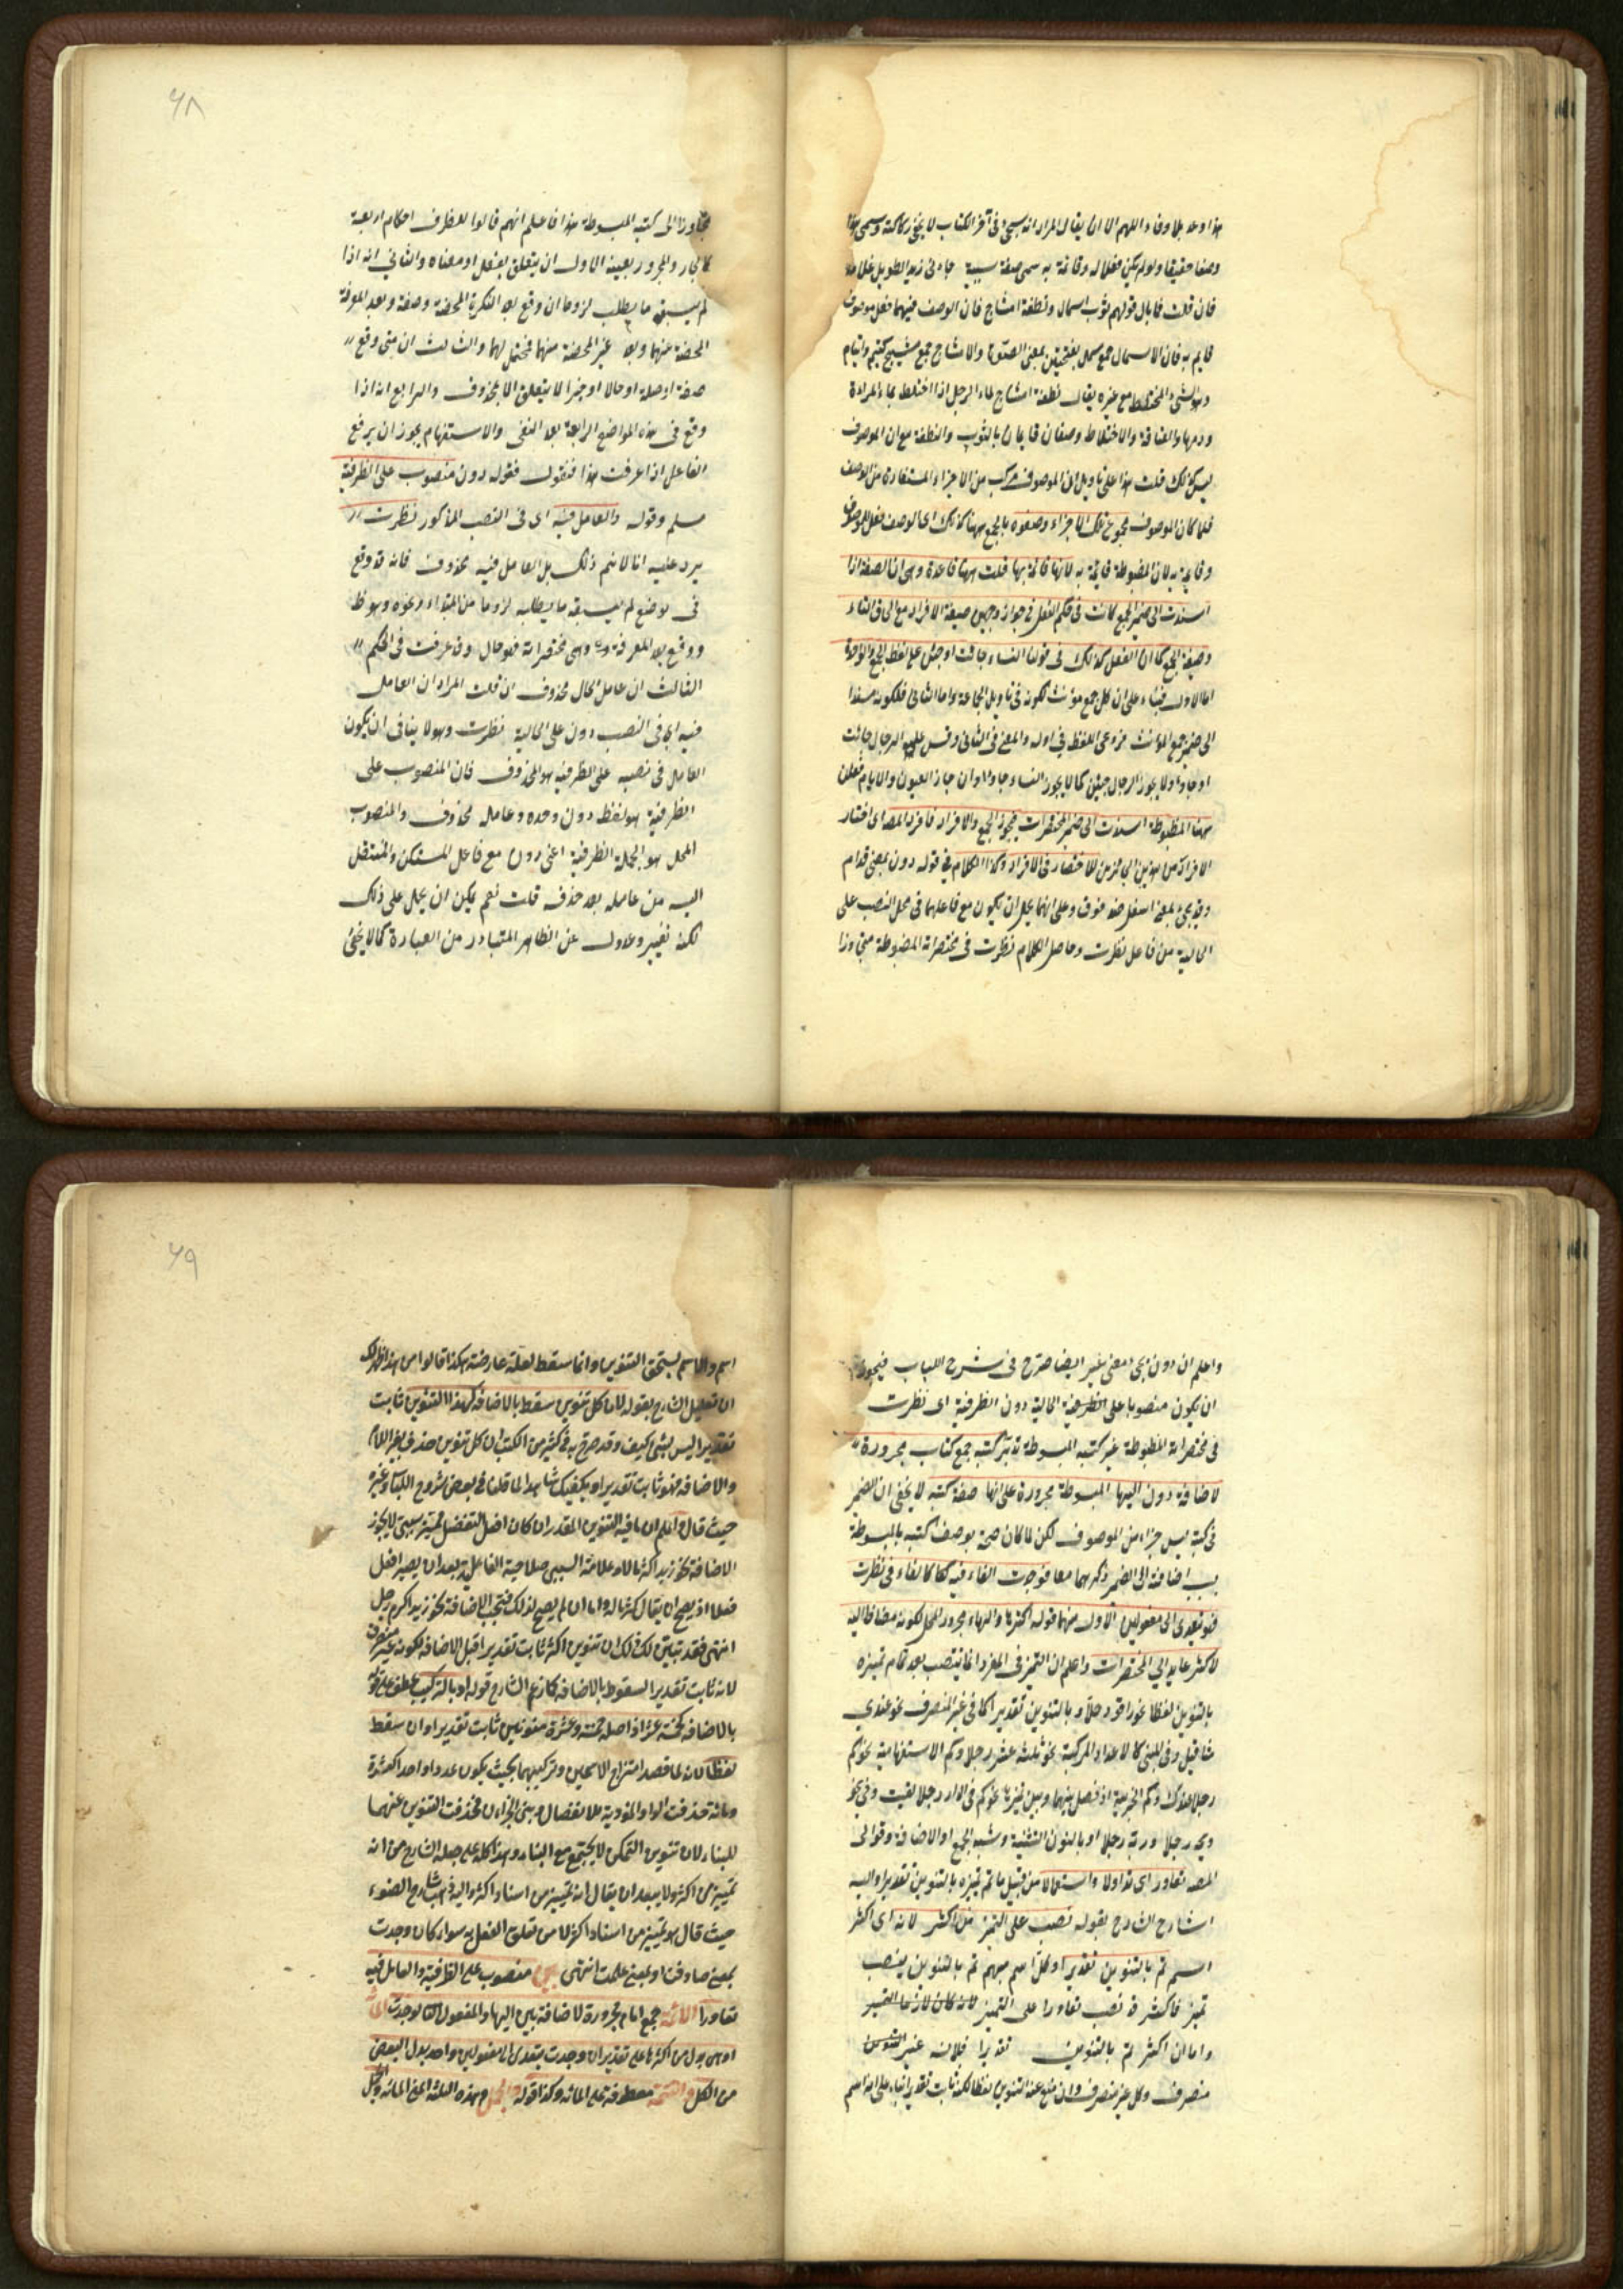 هذا وعد بلا وفاء اللهم الا ان يقال المراد انه سيجئ فى آخر الكتاب لا يخفى ركاكته وسمى هذا
وصفا حقيقيا ولو لم يكن فعلا له وقائمة به سمى صفة سببية جاءنى زيد الطويل غلامه
فان قلت فما بال قولهم ثوب اسمال ونطفة امشاج فان الوصف فيهما فعل موصوف
قايم به فان الاسمال جمع سمل بفتحتين بمعنى والامشاج جمع مشيج كيتيم وايتام
وهو الشئ المختلط مع غيره يقال نطفة امشاج لماء الرجل اذا اختلط بماء المرأة
ودمها والاختلاط وصفان قايمان بالثوب والنطفة مع ان الموصوف
ليس كذلك قلت هذا على تاويل ان الموصوف مركب من الاجزاء المستفادة من الوصف
فلما كان الموصوف مجموع تلك الاجزاء وصفوه بالجمع ههنا كذلك اى الوصف فعل للموصوف
وقايمة به لان المضبوطة قايمة به لانها قائمة بها قلت ههنا قاعدة وهى ان الصفة اذا
اسندت الى ضمير الجمع كانت فى حكم الفعل فى جواز وجهين صيغة الافراد مع الحاق التاء
وصيغة الجمع كما ان الفعل كذلك فى قولنا النساء جاءت او جئن على لفظ الجمع والواحدة
اما الاول فبناء على ان كل جمع مؤنث لكونه فى تاويل الجماعة واما الثانى فلكونه مسندا
الى ضمير جمع المؤنث فروعى اللفظ فى اوله والمعنى فى الثانى وقس عليه الرجال جائت
او جاؤا ولا يجوز الرجال جئن كما لا يجوز النساء جاؤا وان جاز العيون والايام فعلن
ههنا المضبوطة اسندت الى ضمير المختصرات فيجوز الجمع والافراد فافرد المصـ اى اختار
الافراد من الجائزين للاختصار فى الافراد وكذا الكلام فى قوله دون بمعنى قدام
وقد يجئ بمعنى اسفل ضد فوق وعلى انهما يحتمل ان يكون مع فاعلهما فى محل النصب على
الحالية من فاعل نظرت وحاصل الكلام نظرت فى مختصراته المضبوطة متجاوزا
٦٨
متجاوزا الى كتبه المبسوطة هذا فاعلم انهم قالوا للظرف احكام اربعة
كالجار والمجرور بعينه الاول ان يتعلق بفعل او معناه والثانى انه اذا
لم يسبق ما يطلبه لزوما ان وقع بعد النكرة المحضة وصفة وبعد المعرفة
المحضة منهما وبعد غير المحضة منهما محتمل لهما والثالث ان متى وقع
صفة او صلة او حالا او خبرا لا يتعلق الا بمحذوف والرابع انه اذا
وقع فى هذه المواضع الرابعة بعد النفى والاستفهام يجوز ان يرفع
الفاعل اذا عرفت هذا فنقول فقوله دون منصوب على الظرفية
مسلم وقوله والعامل فيه اى فى النصب المذكور نظرت
يرد عليه انا لا نم ذلك بل العامل فيه محذوف فانه قد وقع
فى موضع لم يسبقه ما يطلبه لزوما من المبتداء ونحوه وهو ظ
ووقع بعد المعرفة وهى مختصراته فهو حال وقد عرفت فى الحكم
الثالث ان عامل الحال محذوف ان قلت المراد ان العامل
فيه اى فى النصب دون على الحالية نظرت وهو لا ينافى ان يكون
العامل فى نصبه على الظرفية هو المحذوف فان المنصوب على
الظرفية هو لفظ دون وحده وعامله محذوف والمنصوب
المحل هو الجملة الظرفية اعنى دون مع فاعل المستكن والمنتقل
اليه من عامله بعد حذفه قلت نعم يمكن ان يحمل على ذلك
لكنه تغيير وعدول عن الظاهر المتبادر من العبارة كما لا يخفى
واعلم ان دون يجئ بمعنى غير ايضا صرح فى شرح اللباب فيجوز
ان يكون منصوبا على الظرفية الحالية دون الظرفية اى نظرت
فى مختصراته المضبوطة غير كتبه المبسوطة كتبه جمع كتاب مجرورة
لاضافة دون اليها المبسوطة مجرورة على انها صفة كتبه لا يخفى ان الضمير
فى كتبه ليس جزاء من الموصوف لكن لما كان صحة بوصف كتبه بالمبسوطة
بسبب اضافته الى الضمير ذكرهما معا فوجدت الفاء فيه كما كالفاء فى نظرت
فهو يتعدى الى مفعولين الاول منهما قوله اكثرها والهاء مجرور المحل لكونه مضافا اليه
لاكثر عايد الى المختصرات واعلم ان التميز فى المفرد انما ينتصب بعد تمام تميزه
بالتنوين لفظا نحو راقود خلا وبالتنوين تقديرا كما فى غير المنصرف نحو عندى
مثاقيل وفى المبنى كالاعداد المركبة نحو ثلثة عشر رجلا وكم الاستفهامية نحو كم
رجلا عندك وكم الخبرية اذ فصل بينهما وبين تميزها نحو كم فى الدار رجلا لقيت وفى نحو
ويحه رجلا وربه رجلا او بالنون التثنية وشبه الجمع او الاضافة وقوله
المصـ تعاورا اى تداولا واستعمالا من قبيل ما تم تميزه بالتنوين تقديرا واليه
اشارح الشارح بقوله نصب على التميز من اكثر لانه اى اكثر
اسم تم بالتنوين تقديرا وكل اسم مبهم تم بالتنوين ينصب
تميز فاكثر قد نصب تعاورا على التميز لانه كان لازما التميز
واما ان اكثر تم بالتنوين تقديرا فلانه غير التنوين
منصرف وكل غير منصرف وان منع عنه التنوين لفظا لكنه ثابت تقديرا بناء على انه اسم
٦٩
اسم والاسم يستحق التنوين وانما سقط لعلة عارضة هكذا قالوا من هذا ظهر لك
ان تعليل الشارح بقوله لان كل تنوين سقط بالاضافة فهذا التنوين ثابت
تقديرا ليس بشئ كيف وقد صرح به فى كثير من الكتب ان كل تنوين حذف بغير اللام
والاضافة فهو ثابت تقديرا ويكفيك شاهدا لما قلنا فى بعض شروح اللباب وغيره
حيث قال اعلم ان ما فيه التنوين المقدر ان كان افعل التفضيل فميزه سببى لا يجوز
الاضافة نحو زيد اكثر مالا وعلامة السببى صلاحية الفاعلية بعد ان يصير افعل
فعلا اذ يصح ان يقال كثر ماله واما ان لم يصح لذلك فتجب الاضافة نحو زيد اكرم رجل
انتهى فقد تبين لك ذلك ان تنوين اكثر ثابت تقديرا قبل الاضافة لكونه غير منصرف
لانه ثابت تقديرا لسقوط بالاضافة كما زعم الشارح قوله او بالتركيب عطف على قوله
بالاضافة كخمسة عشر اذ اصله خمسة وعشرة منونين ثابت تقديرا وان سقط
لفظا لانه لما قصد امتزاج الاسمين وتركيبهما بحيث يكون عددا واحدا كعشرة
ومائة حذفت الواو المؤدية للانفصال وبنى الجزاءن فحذفت التنوين عنهما
للبناء لان تنوين التمكن لا يجتمع مع البناء وهذا كله على جعله الشارح من انه
تميز من اكثر ولا يبعد ان يقال انه تميز من اسناد اكثر واليه ذهب شارح الضوء
حيث قال هو تميز من اسناد اكثر لا من تعلق الفعل به سواء كان وجدت
بمعنى صادفت او بمعنى علمت انتهى بين منصوب على الظرفية والعامل فيه
تعاورا الائمة جمع امام مجرورة لاضافة بين اليها والمفعول الثانى لوجدت المائة
او هى بدل من اكثرها على تقدير ان وجدت يتعدى الى مفعولين واحد بدل البعض
من الكل والتتمة معطوفة على المائة وكذا قوله والجمل وهذه الثلثة اعنى المائة والجمل